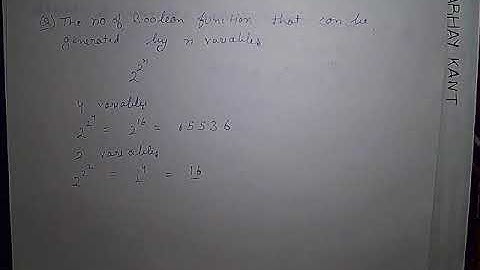 Q) The no of Boolean function that can be
generated by n variables
2^2^n
4 variables
2^2^4 = 2^16 = 65536
2 variables
2^2^2 = 4 = 16
ABHAY KANT